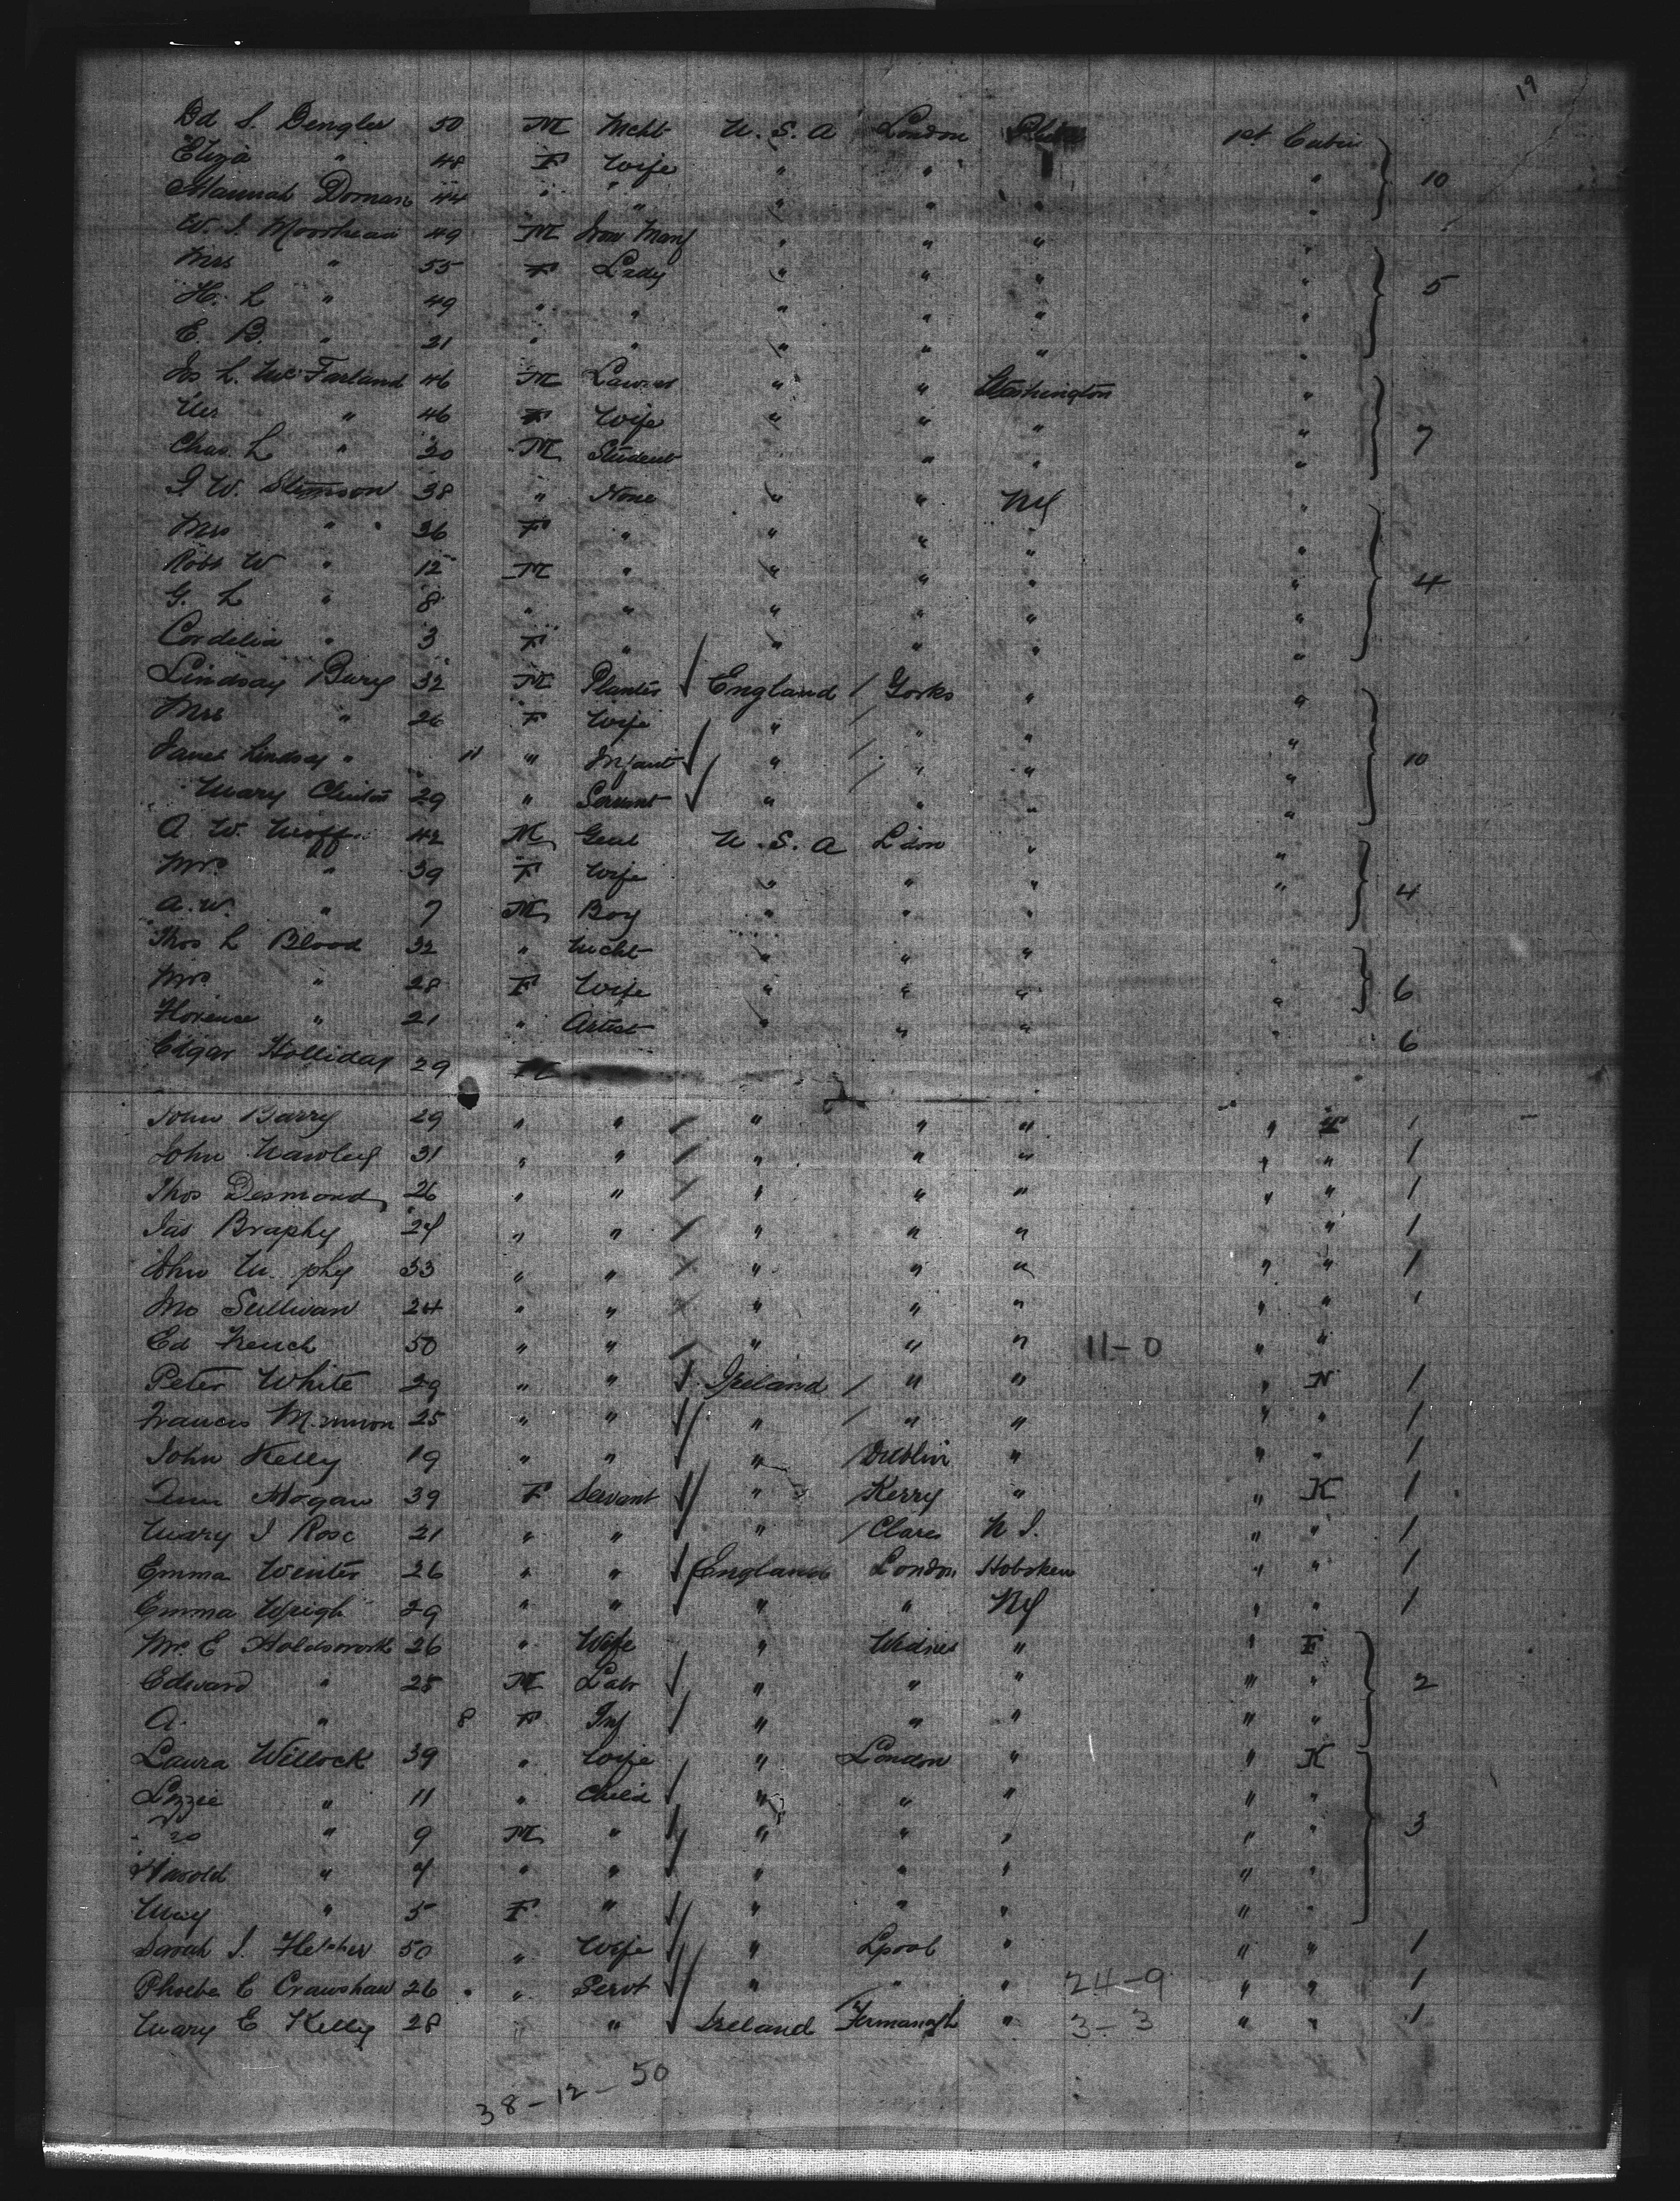 19
Ed S. Dengler 50 M Mcht U.S.A London Phila 1st Cabin
Eliza " 48 F Wife " " " 10
Hannah Dornan 44 " " " " " "
W. J. Moorhead 49 M Iron Manf " " " "
Mrs " 55 F Lady " " " " 5
H. L " 49 " " " " " "
E. B. " 21 " " " " " "
Jos L. McFarland 46 M " " Washington "
Mrs " 46 F Wife " " " " 7
Chas. L " 20 M Student " " "
J W. Stimson 38 " None " " NY "
Mrs " 36 F " " " " "
Robt W " 12 M " " " " " 4
G. L " 8 " " " " " "
Cordelia " 3 F " " " " "
Lindsay Bury 32 M Planter England / Yorks " "
Mrs " 26 F Wife " / " " "
Janet Lindsay " 11 " Infant " / " " " 10
Mary Clinton 29 " Servant " " " "
A. W. 42 M Gent U.S.A Ldon " "
Mrs " 39 F Wife " " " " 4
A. W. " 7 M Boy " " "
Thos L Blood 32 " Mcht " " " "
Mrs " 28 F Wife " " " " 6
Florence " 21 " Artist " " " " 6
Edgar Holliday 29 M
John Barry 29 " " / " " " " 1
John Hawley 31 " " / " " " " " 1
Thos Desmond 26 " " / " " " " " 1
Jas Braphy 24 " " / " " " " 1
John M phy 33 " " / " " " " " 1
Jno Sullivan 24 " " / " " " " " 1
Ed French 50 " " / " " " 11-0 " "
Peter White 29 " " Ireland / " " " N 1
Francis 25 " " " / " " " " 1
John Kelly 19 " " " / Dublin " " " 1
Ann Hogan 39 F Servant " / Kerry " " K 1
Mary J Rose 21 " " " / Clare N J. " " 1
Emma Winter 26 " " England London Hoboken " " 1
Emma Wrigh 29 " " " " NY " " 1
Mrs E Holdsworth 26 " Wife " Widnes " " F
Edward " 25 M Labr " " " " " 2
A. " 8 F Inf " " " " "
Laura Willock 39 " Wife " London " " K
Lizzie " 11 " Child " " " " "
" 9 M " " " " " " 3
Harold " 7 " " " " " " "
May " 5 F " " " " " "
Sarah J. Fletcher 50 " Wife " Lpool " " " 1
Phoebe C Crawshaw 26 " Servt " " " 24-9 " " 1
Mary E Kelly 28 " " Ireland Fermanagh " 3-3 " " 1
38-12-50